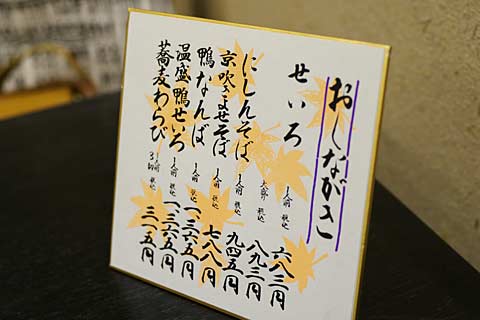 おしながき
せいろ 1人前 税込 六八三円
大盛 税込 八九三円
にしんそば 1人前 税込 九四五円
京吹よせそば 1人前 税込 七八八円
鴨なんば 1人前 税込 一、三六五円
温盛鴨せいろ 1人前 税込 一、三六五円
蕎麦わらび 1人前 税込 三一五円